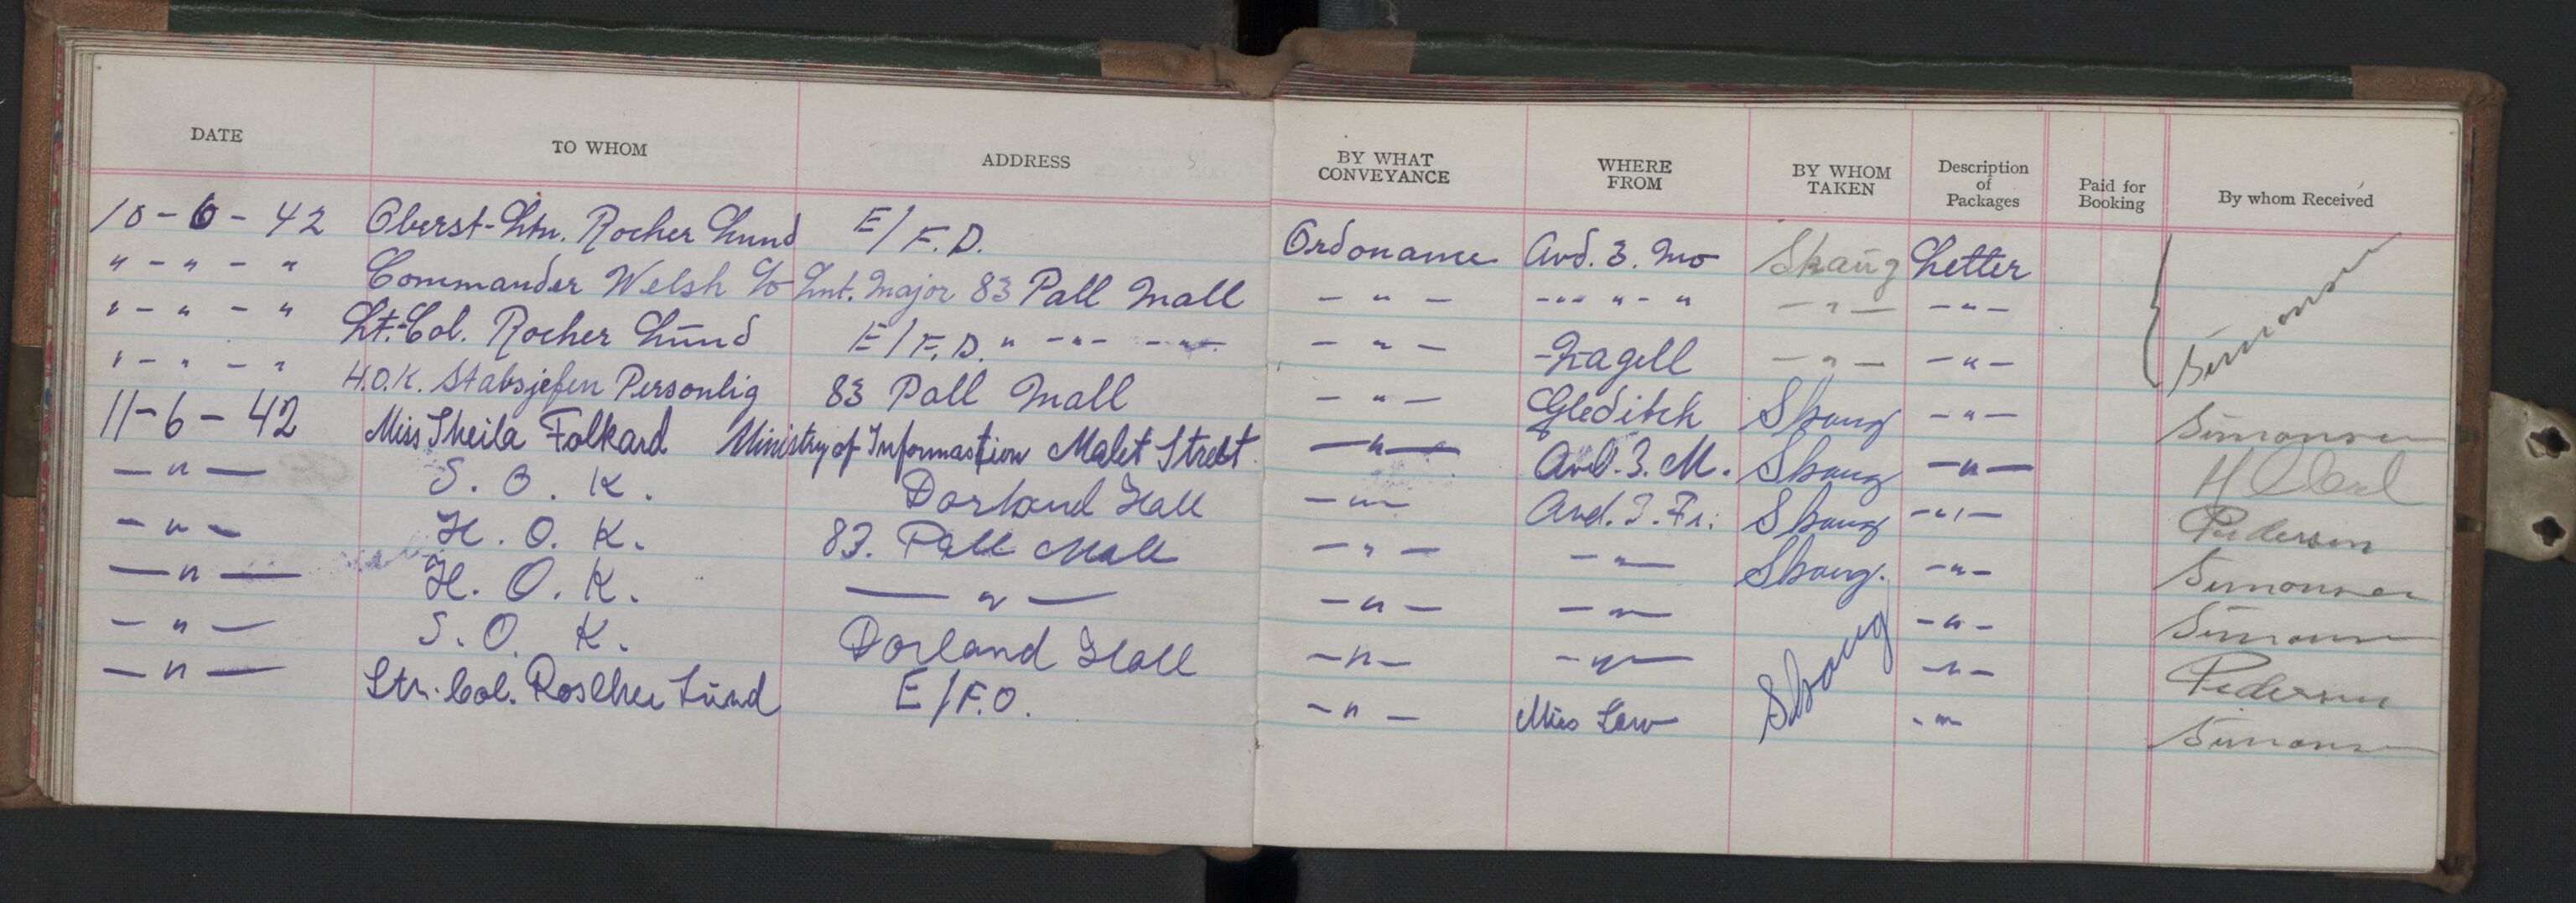 DATE TO WHOM ADDRESS BY WHAT CONVEYANCE WHERE FROM BY WHOM TAKEN Description of Packages Paid for Booking By whom Received
10-6-42 Oberst-Ltn. Rocher Lund E/F.D. Ordonance Avd. 3. Mo Skaug Letter
" - " - " Commander Welsh c/o Int. Major 83 Pall Mall - " - - " - " - " - " - - " - Simonsen
" - " - " Lt.-Col. Rocher Lund E/F.D. " - " - - " - - " - Nagell - " - - " -
" - " - " H.O.K. Stabsjefen Personlig 83 Pall Mall - " - Gleditch Skaug - " - Simonsen
11-6-42 Miss Sheila Folkard Ministry of Information Malet Street - " - Avd. 3. M. Skaug - " -
- " - S. O. K. Dorland Hall - " - Avd. 3. Fr. Skaug - " - Pedersen
- " - H. O. K. 83. Pall Mall - " - - " - Skaug. - " - Simonsen
- " - H. O. K. - " - - " - - " - - " - Simonsen
- " - S. O. K. Dorland Hall - " - - " - Skaug - " - Pedersen
- " - Ltn. Col. Roscher Lund E/F.O. - " - Miss Law - " - Simonsen